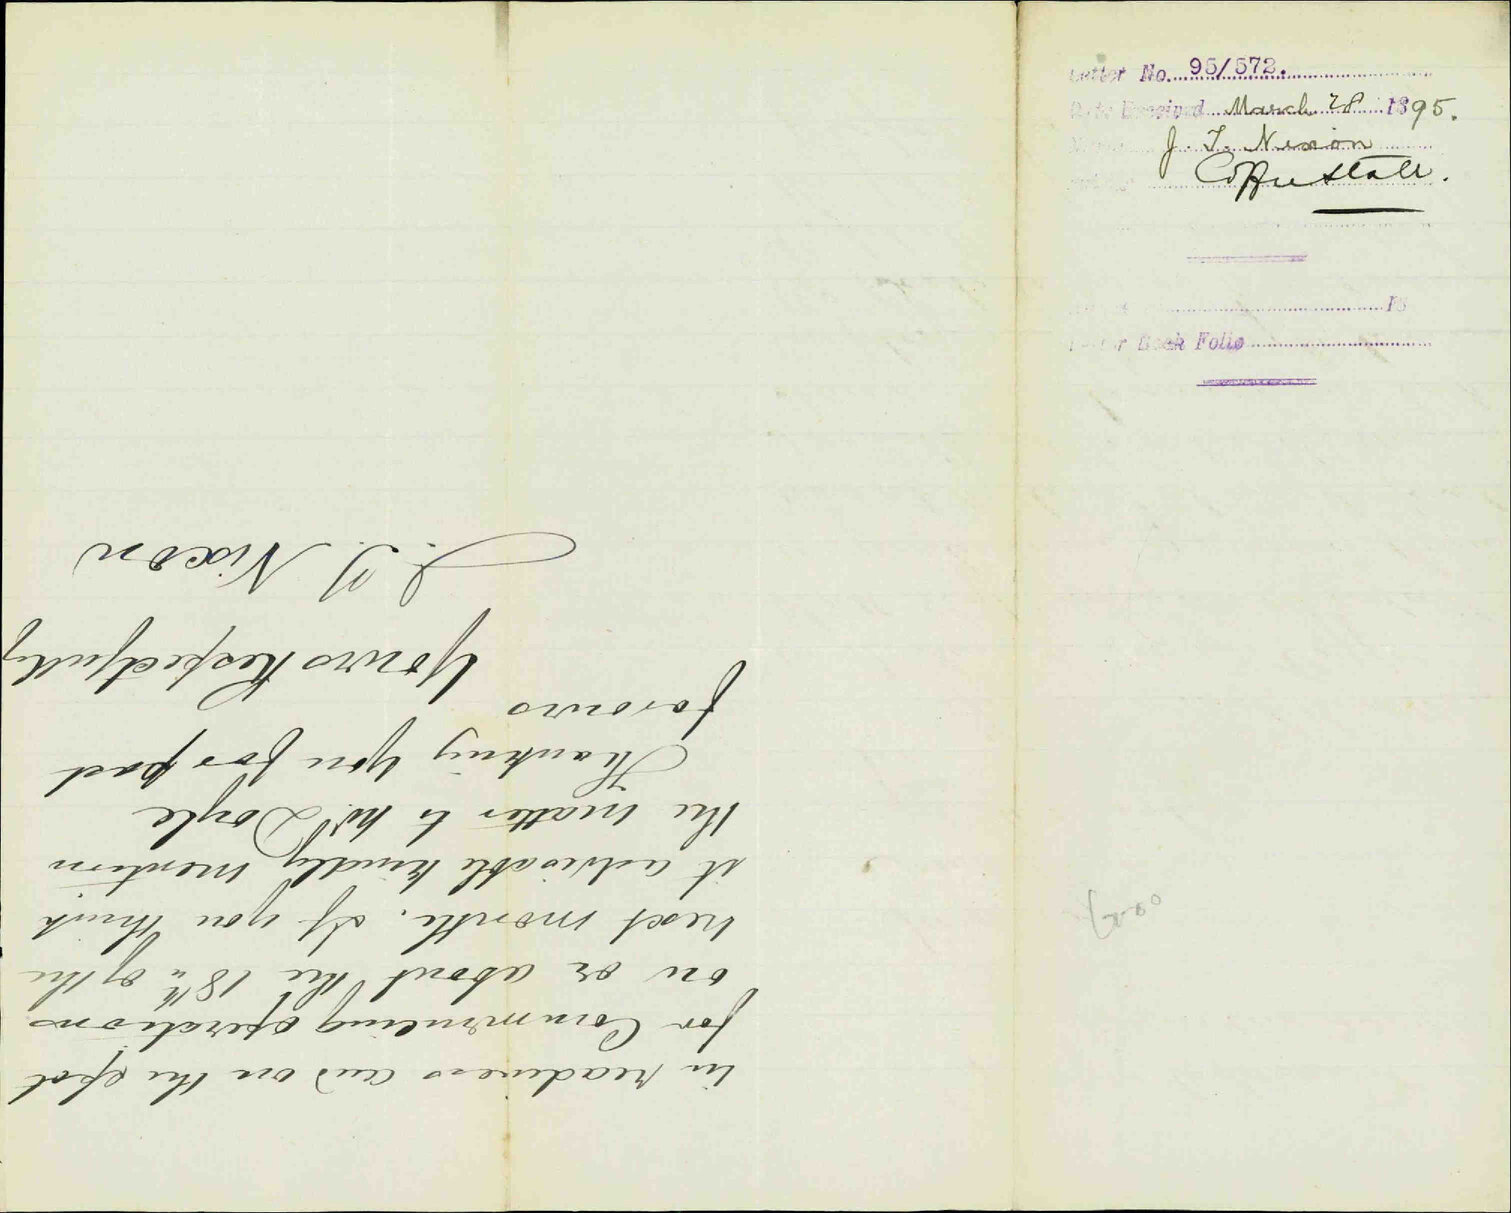 Letter No. 95/572.
Date Received March 28 1895.
Name J. T. Nixon
Coffee Stall.
18
Letter Book Folio
in readiness and on the spot
for Commencing operations
on or about the 18th of the
next month. If you think
it advisable kindly mention
the matter to Mr. Doyle
Thanking you for past
favours
Yours Respectfully
J. T. Nixon